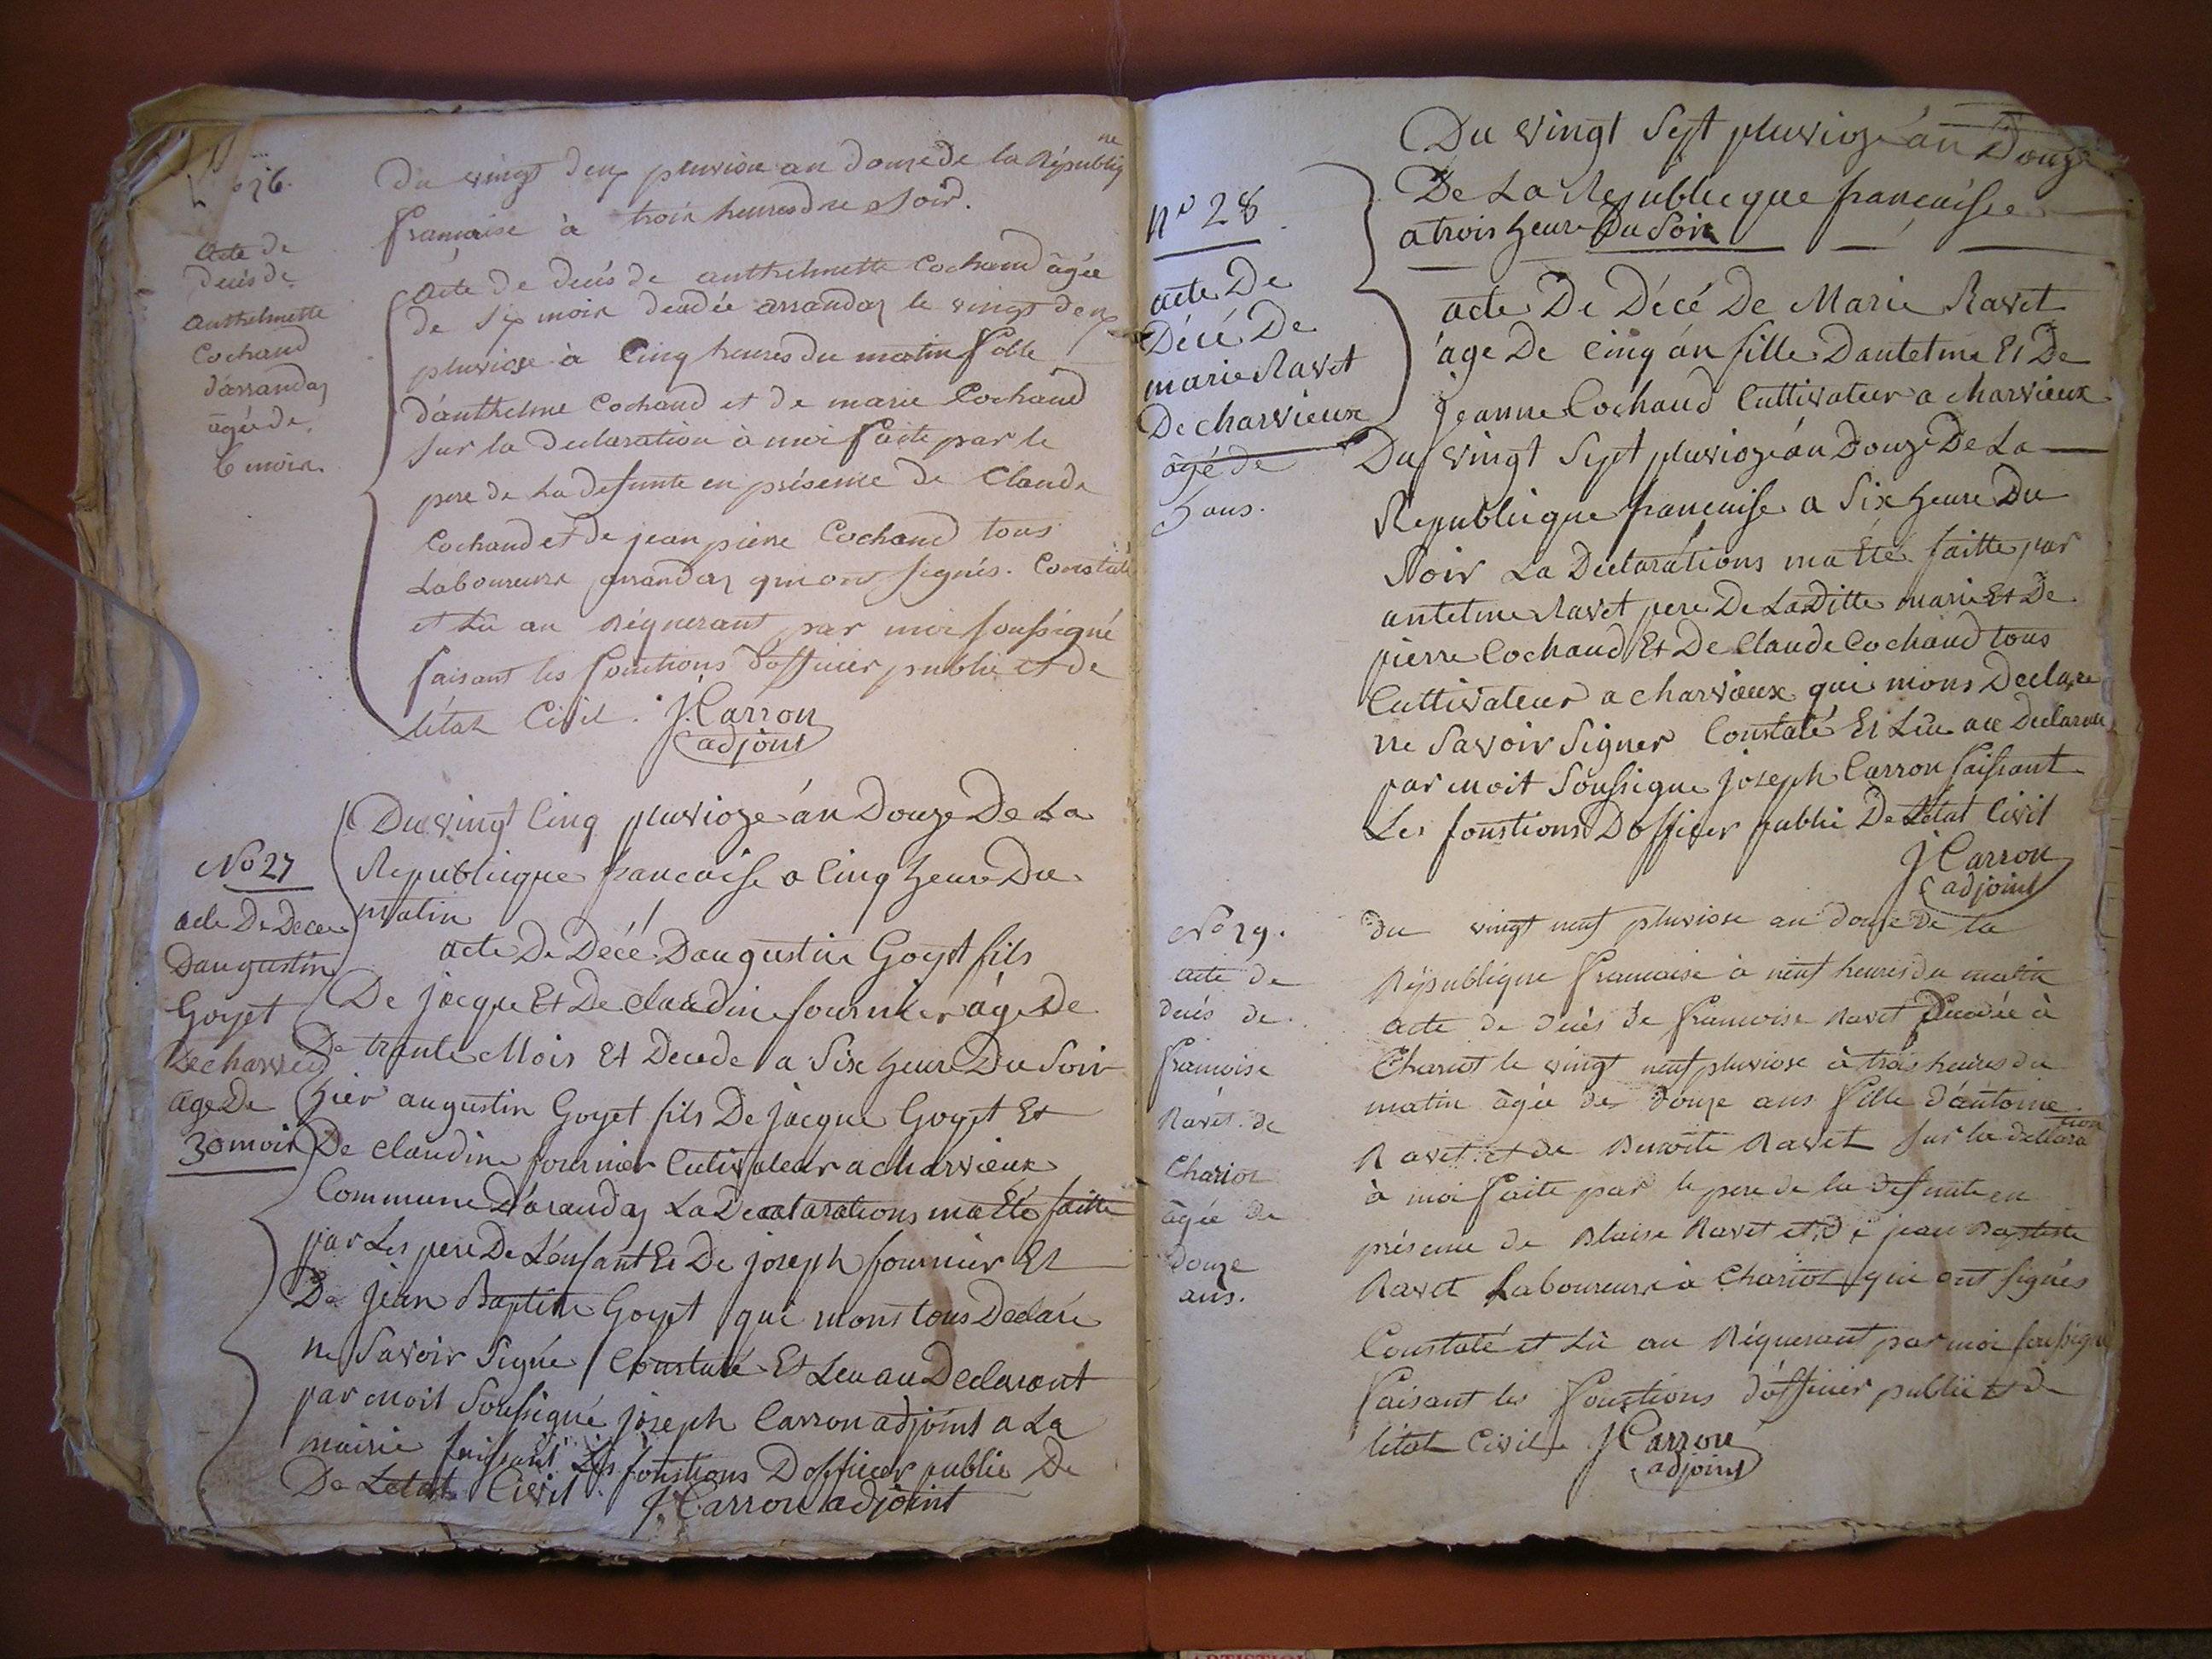 N° 26.
acte de
decés de
anthelmette
Cochand
d'arrandaz
âgée de
6 mois
du vingt deux pluviose an douze de la Républiq ne
francaise à trois heures du soir.
acte de decés de anthelmette Cochand âgée
de six mois decedée arrandaz le vingt deux
pluviose à Cinq heures du matin fille
d'anthelme Cochand et de marie Cochand
sur la declaration à moi faite par le
pere de la defunte en présence de Claude
Cochand et de jean pierre Cochand tous
Laboureurs arrandaz qui ont signés. Constaté
et Lû au Réquerant par moi soussigné
faisant les fonctions d'officier public et de
létat Civil. J. Carron
adjoint
No 27
acte De Decee
Daugustin
Goyet
De charvieu
age De
30 mois
Du vingt Cinq pluvioze án Douze De La
Republicque francaise a Cinq heure Du
matin
acte De Décé Daugustin Goyet fils
De jacque Et De claudine fournier áge De
De trante Mois Et Decede a Six heure Du Soir
hier augustin Goyet fils De jacque Goyet Et
De claudine fournier Cutivateur a charvieux
Commune D'arandaz La Declarations ma Eté faitte
par Les pere De L'enfant Et De joseph fournier Et
De jean Baptiste Goyet qui mons tous Declaré
ne Savoir Signé Constaté Et Leu au Declarant
par moit Soussigné joseph Carron adjoint a La
mairie faissant Les fonstions Dofficer public De
De Letat Civil. J. Carron adjoint
N° 28
acte De
Décé De
marie Ravet
De charvieux
âgé de
5 ans.
Du vingt Sept pluvioze án Douze
De La Republicque francaisse
a trois heure Du Soir
acte De Décé De Marie Ravet
áge De Cinq án fille Dantelme Et De
jeanne Cochaud Cultivateur a charvieux
Du vingt Sept pluvioze án Douze De La
Republicque francaise a Six heure Du
Soir La Declarátions ma Eté faitte par
antelme Ravet pere De La Ditte marie Et De
pierre Cochaud Et De Claude Cochaud tous
Cultivateur a charvieux qui mons Declare
ne Savoir Signer Constaté Et Leu au Declarant
par moit Soussigne joseph Carron faissant
Les fonstions Dofficer public De Létat Civil
J Carron
adjoint
No 29.
acte de
decés de
francoise
Ravet de
Chariot
âgée de
douze
ans.
du vingt neuf pluviose an douze de la
République francaise à neuf heures du matin
acte de decés de francoise Ravet Decedée à
Chariot le vingt neuf pluviose à trois heures du
matin âgée de douze ans fille d'antoine
Ravet et de Benoite Ravet sur la declara tion
à moi faite par le pere de la defunte en
présence de Blaise Ravet et de jean Baptiste
Ravet Laboureurs à Chariot qui ont signés
Constaté et Lû au Réquerant par moi soussigné
faisant les fonctions d'officier public et de
létat Civil. J Carron
adjoint